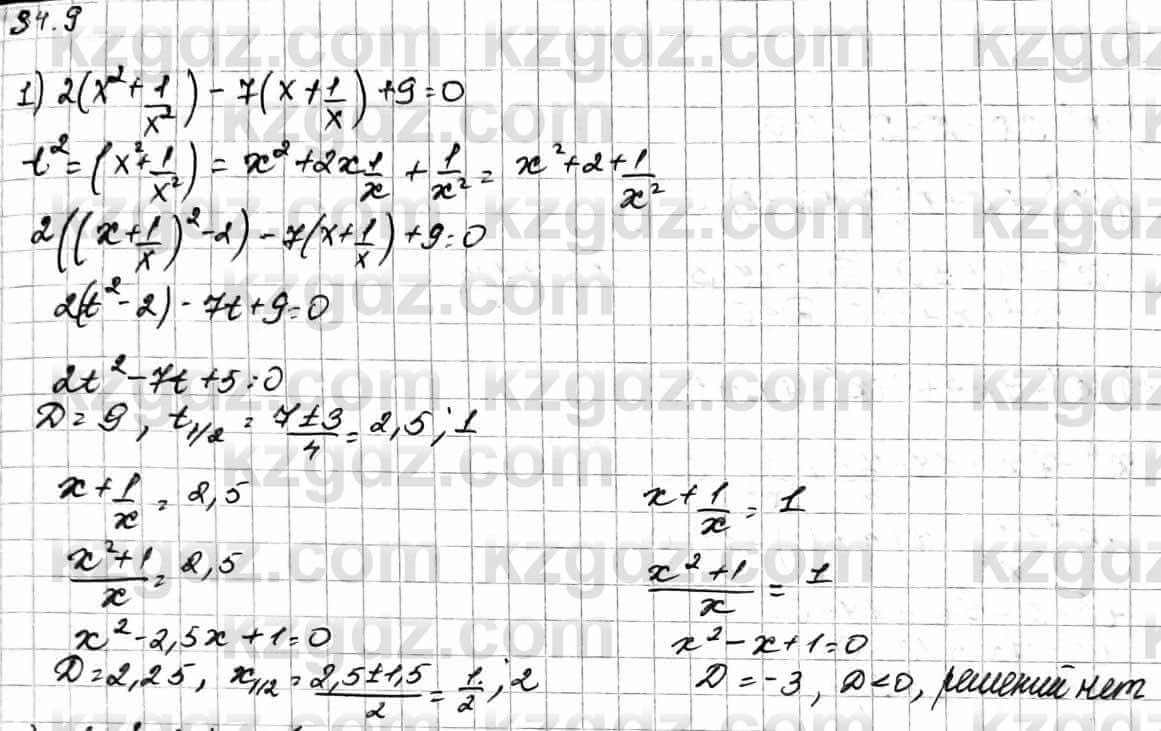 34.9
1) 2(x²+1/x²) - 7(x+1/x) +9=0
t²=(x²+1/x²) = x²+2x1/x + 1/x² = x²+2+1/x²
2((x+1/x)²-2) - 7(x+1/x) +9=0
2(t²-2) - 7t+9=0
2t²-7t+5=0
D=9, t₁/₂ = 7±3/4 = 2,5; 1
x+1/x = 2,5
x²+1/x = 2,5
x²-2,5x+1=0
D=2,25, x₁/₂ = 2,5±1,5/2 = 1/2; 2
x+1/x = 1
x²+1/x = 1
x²-x+1=0
D=-3, D<0, решений нет
kzgdz.com